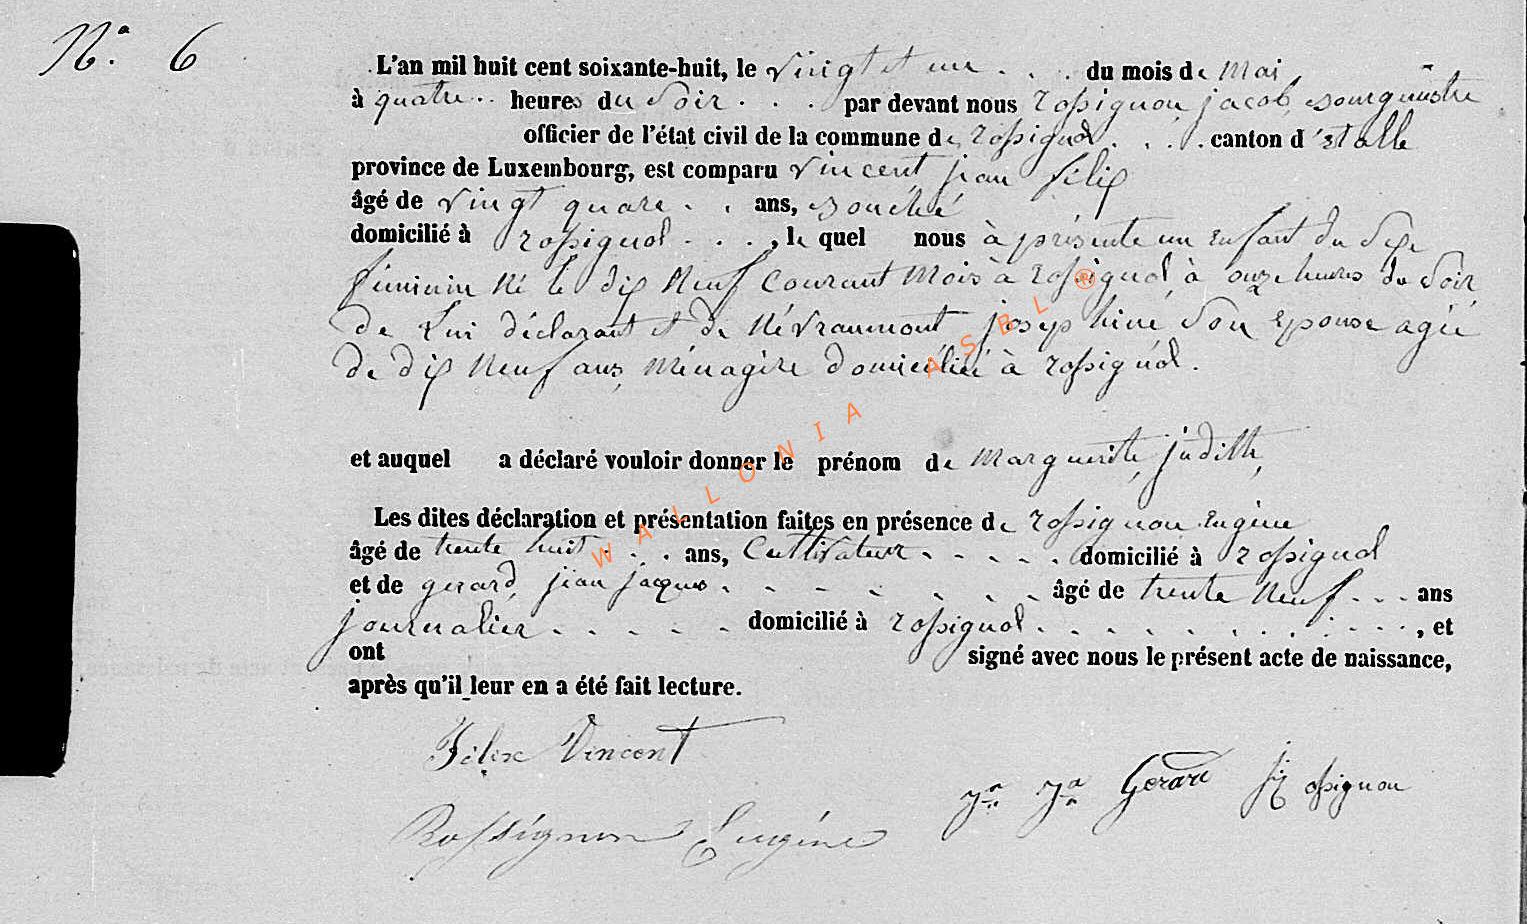 N.° 6
L'an mil huit cent soixante-huit, le vingt et un . . . du mois de Mai
à quatre .. heures du Soir . . . par devant nous rossignon, jacob, Bourgmestre
officier de l'état civil de la commune de rossignol . . . . canton d'Etalle
province de Luxembourg, est comparu vincent jean félix
âgé de vingt quare . . ans,
domicilié à rossignol . . . , le quel nous à présenté un Enfant du Sexe
féminin Né le dix Neuf Courant Mois à rossignol à onze heures du Soir
de Lui déclarant et de Névraumont joséphine Son Epouse agée
de dix Neuf ans, Ménagère domiciliée à rossignol.
et auquel a déclaré vouloir donner le prénom de Marguerite, judith,
Les dites déclaration et présentation faites en présence de rossignon Eugène
âgé de trente huit . . . ans, Cultivateur - - - - . domicilié à rossignol
et de gerard, jean jacques - - - - - - - âgé de trente Neuf - - - ans
journalier - - - - - domicilié à rossignol . . . . . . . . . . , et
ont signé avec nous le présent acte de naissance,
après qu'il leur en a été fait lecture.
Félix Vincent
Jn Jq Gerard J rossignon
Rossignon Eugène
WALLONIA ASBL ®